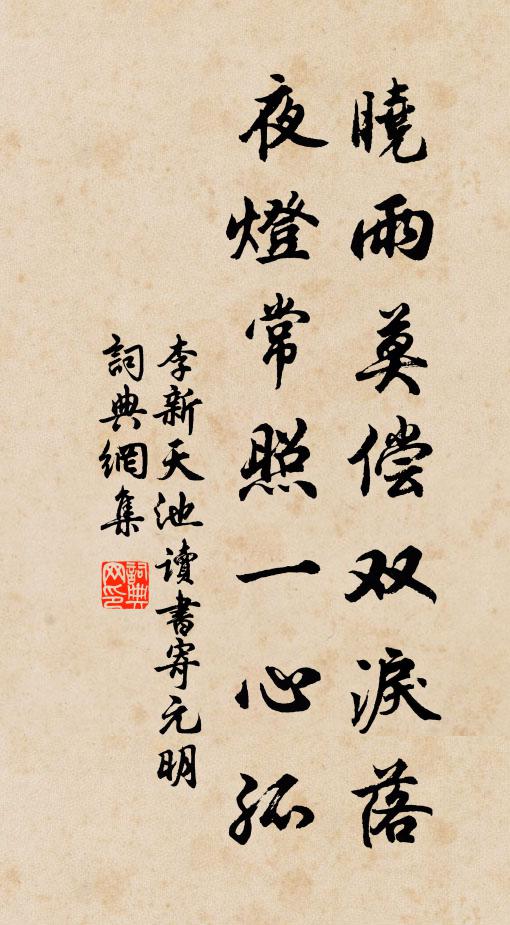 曉雨莫偿双淚落
夜燈常照一心孤
李新天池讀書寄元明
詞典網集
詞典网印